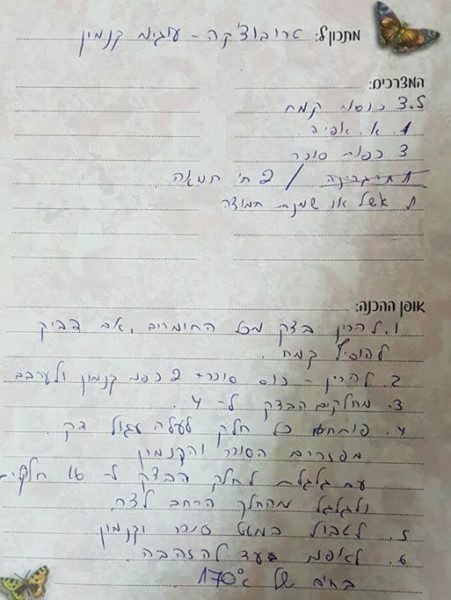 מתכון ל: ארובוצ'קה - עוגיות קנמון
המצרכים:
3.5 כוסות קמח
1 א. אפיה.
3 כפות סוכר
2 ח' חמאה.
1 אשל או שמנת חמוצה
אופן ההכנה:
1. להכין בצק מכל החומרים, אם דביק
להוסיף קמח.
2. להכין - כוס סוכר + 2 כפות קנמון ולערבב
3. מחלקים הבצק ל- 4.
4. פותחים כל חלק לעלה עגול דק.
מפזרים הסוכר והקנמון
עם גלגלת לחלק הבצק ל- 16 חלקים
ולגלגל מהחלק הרחב לצר.
5. לטבול במעט סוכר וקנמון
6. לאפות בעד להזהבה.
בחום של 170°